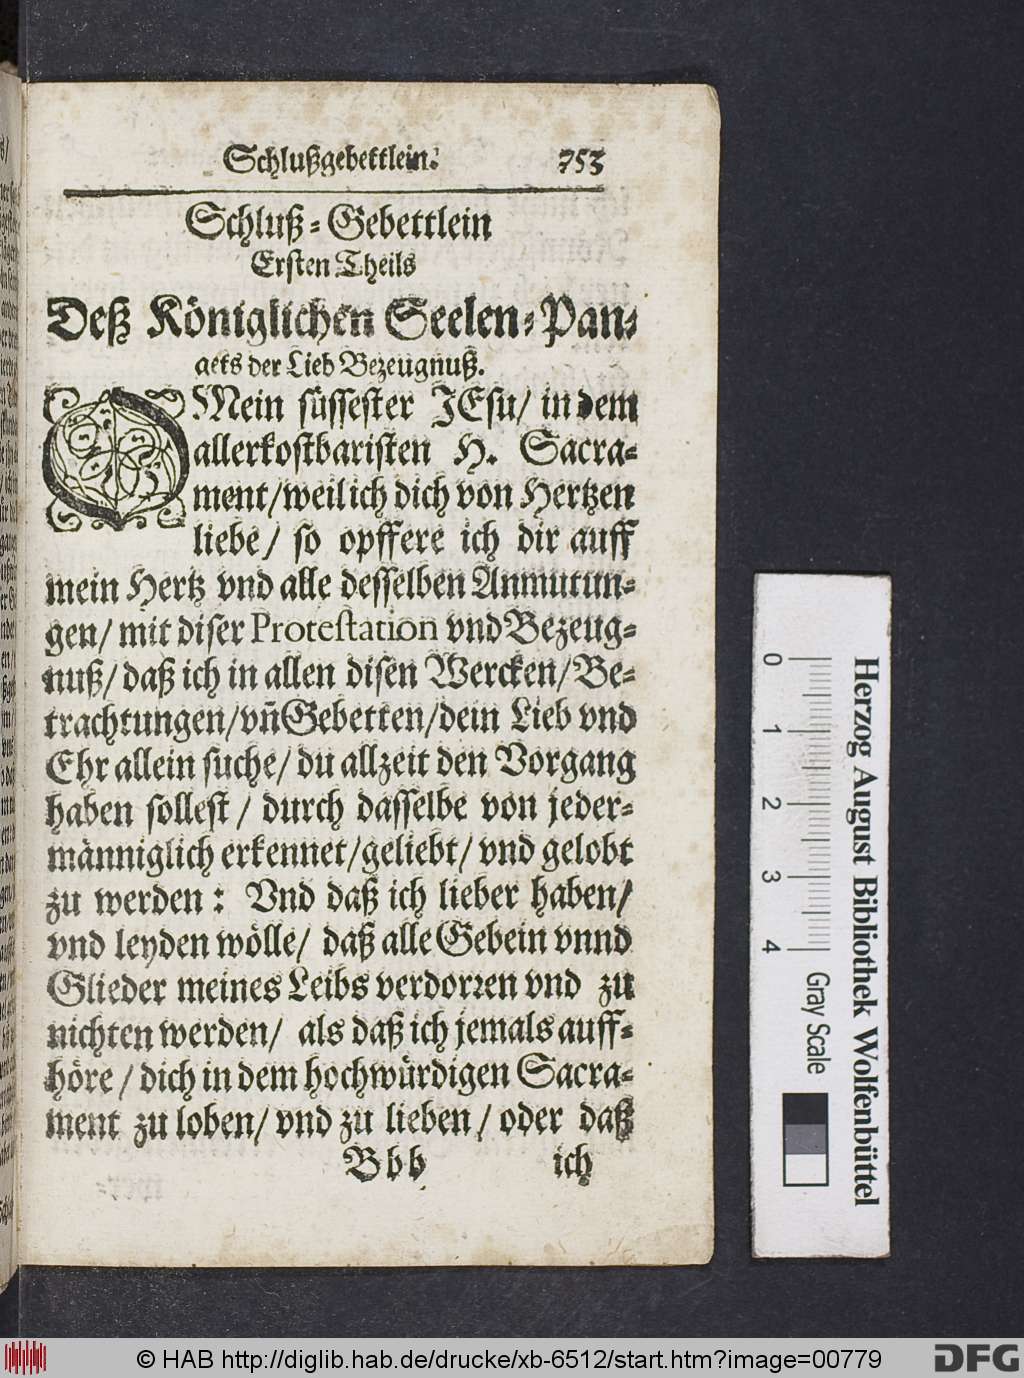 Schlußgebettlein. 753
Schluß-Gebettlein
Ersten Theils
Deß Königlichen Seelen-Pan-
gets der Lieb Bezeugnuß.
O Mein süssester JEsu/ in dem
allerkostbaristen H. Sacra-
ment/weil ich dich von Hertzen
liebe/ so opffere ich dir auff
mein Hertz vnd alle desselben Anmutun-
gen/ mit diser Protestation vnd Bezeug-
nuß/ daß ich in allen disen Wercken/ Be-
trachtungen/vñ Gebetten/dein Lieb vnd
Ehr allein suche/ du allzeit den Vorgang
haben sollest/ durch dasselbe von jeder-
männiglich erkennet/geliebt/ vnd gelobt
zu werden: Vnd daß ich lieber haben/
vnd leyden wölle/ daß alle Gebein vnnd
Glieder meines Leibs verdorren vnd zu
nichten werden/ als daß ich jemals auff-
höre/ dich in dem hochwürdigen Sacra-
ment zu loben/ vnd zu lieben/ oder daß
Bbb ich
0 1 2 3 4
Gray Scale
Herzog August Bibliothek Wolfenbüttel
© HAB http://diglib.hab.de/drucke/xb-6512/start.htm?image=00779
DFG